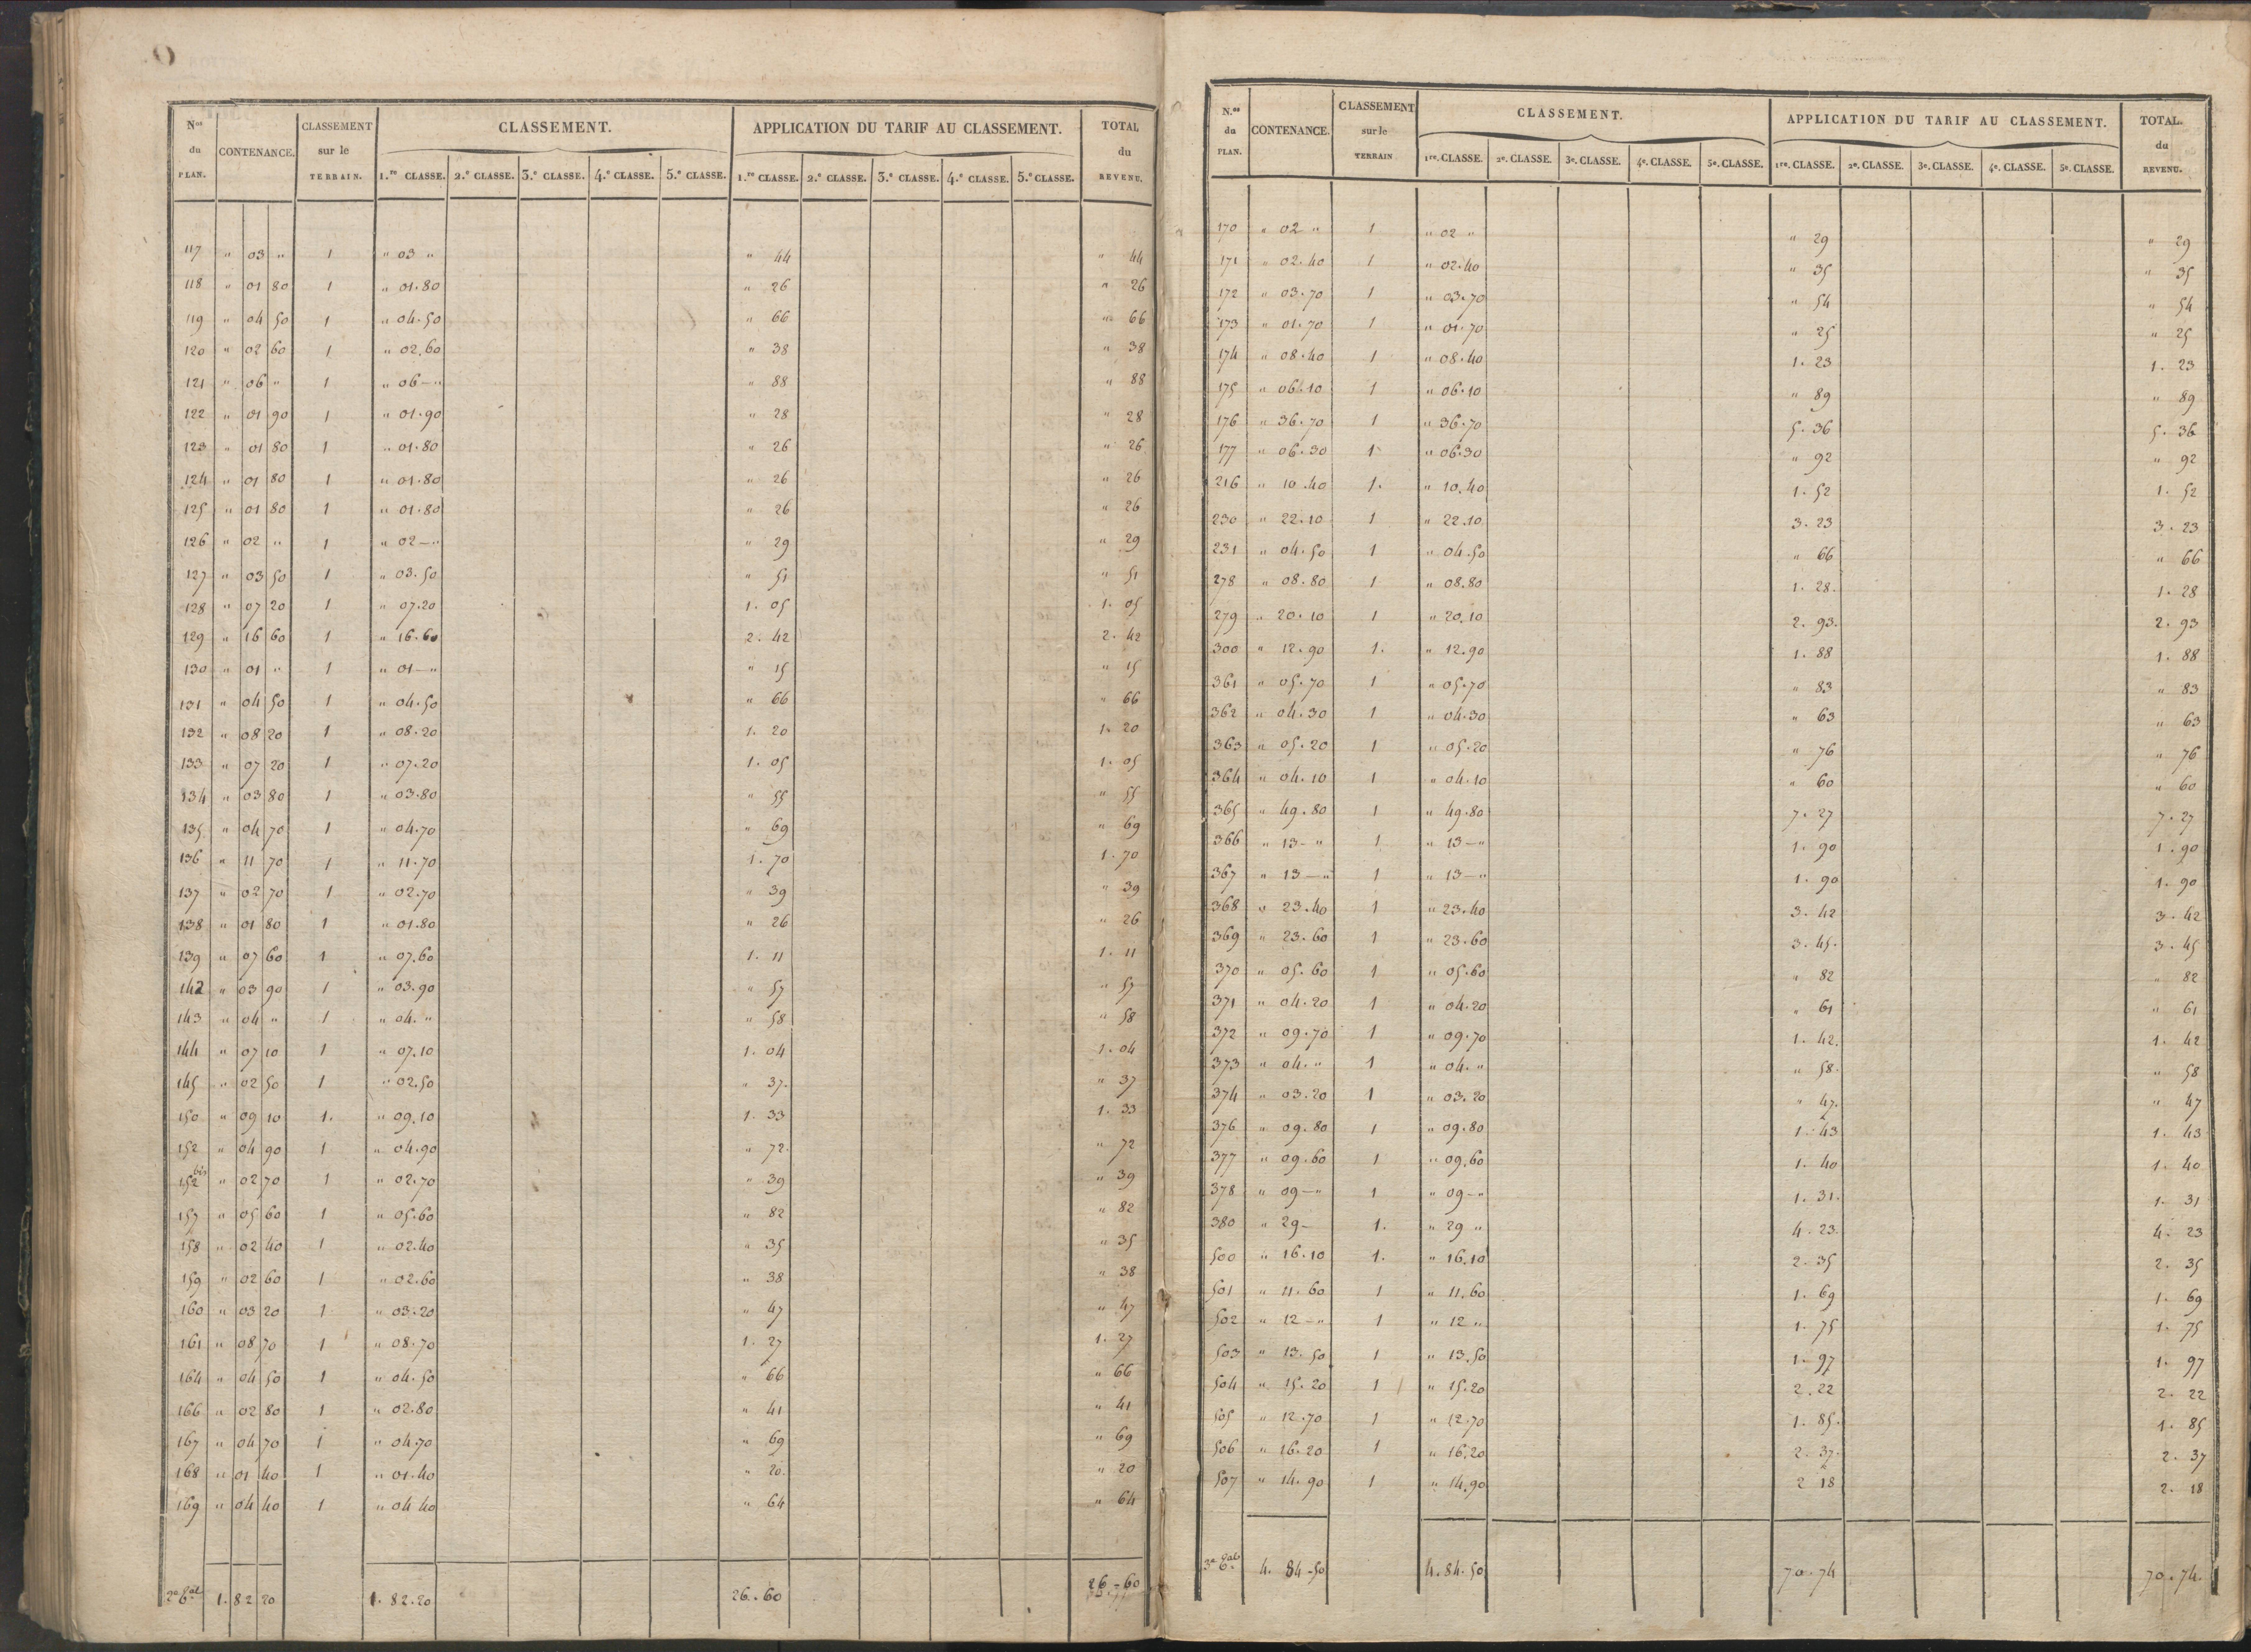 N.os du PLAN. CONTENANCE. CLASSEMENT sur le TERRAIN. CLASSEMENT. APPLICATION DU TARIF AU CLASSEMENT. TOTAL du REVENU.
1.re CLASSE. 2.e CLASSE. 3.e CLASSE. 4.e CLASSE. 5.e CLASSE. 1.re CLASSE. 2.e CLASSE. 3.e CLASSE. 4.e CLASSE. 5.e CLASSE.
117 " 03 " 1 " 03 " " 44 " 44
118 " 01 80 1 " 01.80 " 26 " 26
119 " 04 50 1 " 04.50 " 66 " 66
120 " 02 60 1 " 02.60 " 38 " 38
121 " 06 " 1 " 06 – " " 88 " 88
122 " 01 90 1 " 01.90 " 28 " 28
123 " 01 80 1 " 01.80 " 26 " 26
124 " 01 80 1 " 01.80 " 26 " 26
125 " 01 80 1 " 01.80 " 26 " 26
126 " 02 " 1 " 02 – " " 29 " 29
127 " 03 50 1 " 03.50 " 51 " 51
128 " 07 20 1 " 07.20 1. 05 1. 05
129 " 16 60 1 " 16.60 2. 42 2. 42
130 " 01 " 1 " 01 – " " 15 " 15
131 " 04 50 1 " 04.50 " 66 " 66
132 " 08 20 1 " 08.20 1. 20 1. 20
133 " 07 20 1 " 07.20 1. 05 1. 05
134 " 03 80 1 " 03.80 " 55 " 55
135 " 04 70 1 " 04.70 " 69 " 69
136 " 11 70 1 " 11.70 1. 70 1. 70
137 " 02 70 1 " 02.70 " 39 " 39
138 " 01 80 1 " 01.80 " 26 " 26
139 " 07 60 1 " 07.60 1. 11 1. 11
142 " 03 90 1 " 03.90 " 57 " 57
143 " 04 " 1 " 04. " " 58 " 58
144 " 07 10 1 " 07.10 1. 04 1. 04
145 " 02 50 1 " 02.50 " 37. " 37
150 " 09 10 1. " 09.10 1. 33 1. 33
152 " 04 90 1 " 04.90 " 72. " 72
152 bis " 02 70 1 " 02.70 " 39 " 39
157 " 05 60 1 " 05.60 " 82 " 82
158 " 02 40 1 " 02.40 " 35 " 35
159 " 02 60 1 " 02.60 " 38 " 38
160 " 03 20 1 " 03.20 " 47 " 47
161 " 08 70 1 " 08.70 1. 27 1. 27
164 " 04 50 1 " 04.50 " 66 " 66
166 " 02 80 1 " 02.80 " 41 " 41
167 " 04 70 1 " 04.70 " 69 " 69
168 " 01 40 1 " 01.40 " 20. " 20
169 " 04 40 1 " 04 40 " 64 " 64
1. 82 20 1. 82.20 26. 60 26 – 60
N.os du PLAN. CONTENANCE. CLASSEMENT sur le TERRAIN CLASSEMENT. APPLICATION DU TARIF AU CLASSEMENT. TOTAL. du REVENU.
1re. CLASSE. 2e. CLASSE. 3e. CLASSE. 4e. CLASSE. 5e. CLASSE. 1re. CLASSE. 2e. CLASSE. 3e. CLASSE. 4e. CLASSE. 5e. CLASSE.
170 " 02 " 1 " 02 " " 29 " 29
171 " 02.40 1 " 02.40 " 35 " 35
172 " 03.70 1 " 03.70 " 54 " 54
173 " 01.70 1 " 01.70 " 25 " 25
174 " 08.40 1 " 08.40 1. 23 1. 23
175 " 06.10 1 " 06.10 " 89 " 89
176 " 36.70 1 " 36.70 5. 36 5. 36
177 " 06.30 1 " 06.30 " 92 " 92
216 " 10.40 1. " 10.40 1. 52 1. 52
230 " 22.10 1 " 22.10 3. 23 3. 23
231 " 04.50 1 " 04.50 " 66 " 66
278 " 08.80 1 " 08.80 1. 28. 1. 28
279 " 20.10 1 " 20.10 2. 93. 2. 93
300 " 12.90 1. " 12.90 1. 88 1. 88
361 " 05.70 1 " 05.70 " 83 " 83
362 " 04.30 1 " 04.30 " 63 " 63
363 " 05.20 1 " 05.20 " 76 " 76
364 " 04.10 1 " 04.10 " 60 " 60
365 " 49.80 1 " 49.80 7. 27 7. 27
366 " 13 – " 1 " 13 – " 1. 90 1. 90
367 " 13 – " 1 " 13 – " 1. 90 1. 90
368 " 23.40 1 " 23.40 3. 42 3. 42
369 " 23.60 1 " 23.60 3. 45. 3. 45
370 " 05.60 1 " 05.60 " 82 " 82
371 " 04.20 1 " 04.20 " 61 " 61
372 " 09.70 1 " 09.70 1. 42. 1. 42
373 " 04. " 1 " 04. " " 58. " 58
374 " 03.20 1 " 03.20 " 47. " 47
376 " 09.80 1 " 09.80 1. 43 1. 43
377 " 09.60 1 " 09.60 1. 40 1. 40
378 " 09 – " 1 " 09 – " 1. 31. 1. 31
380 " 29 – 1. " 29 " 4. 23. 4. 23
500 " 16.10 1. " 16.10 2. 35 2. 35
501 " 11.60 1 " 11.60 1. 69 1. 69
502 " 12 – " 1 " 12 " 1. 75 1. 75
503 " 13.50 1 " 13.50 1. 97 1. 97
504 " 15.20 1 " 15.20 2. 22 2. 22
505 " 12.70 1 " 12.70 1. 85. 1. 85
506 " 16.20 1 " 16.20 2. 37. 2. 37
507 " 14.90 1 " 14.90 2 18 2. 18
4. 84 – 50 4. 84. 50 70. 74 70. 74.